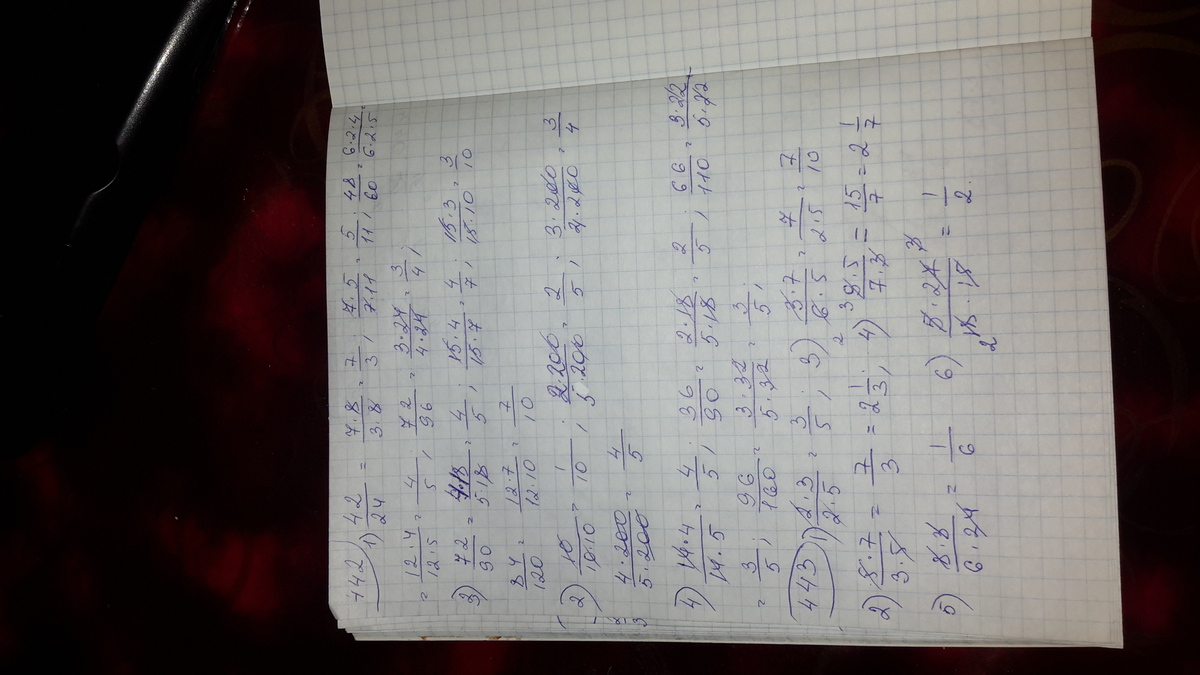 442) 1) 42/24 = 7·8/3·8 = 7/3, 7·5/7·11 = 5/11; 48/60 = 6·2·4/6·2·5 =
= 12·4/12·5 = 4/5, 72/96 = 3·24/4·24 = 3/4;
3) 72/90 = 4·18/5·18 = 4/5; 15·4/15·7 = 4/7; 15·3/15·10 = 3/10
84/120 = 12·7/12·10 = 7/10
2) 10/10·10 = 1/10, 2·200/5·200 = 2/5, 3·200/4·200 = 3/4
4·200/5·200 = 4/5
4) 14·4/14·5 = 4/5; 36/90 = 2·18/5·18 = 2/5; 66/110 = 3·22/5·22
= 3/5; 96/160 = 3·32/5·32 = 3/5;
443) 1) 2·3/2·5 = 3/5; 3) 3·7/6·5 = 7/2·5 = 7/10
2
2) 8·7/3·8 = 7/3 = 2 1/3; 4) 3 9·5/7·3 = 15/7 = 2 1/7
5) 8·3/6·24 = 1/6 6) 5·24 3/2 15·18 = 1/2.